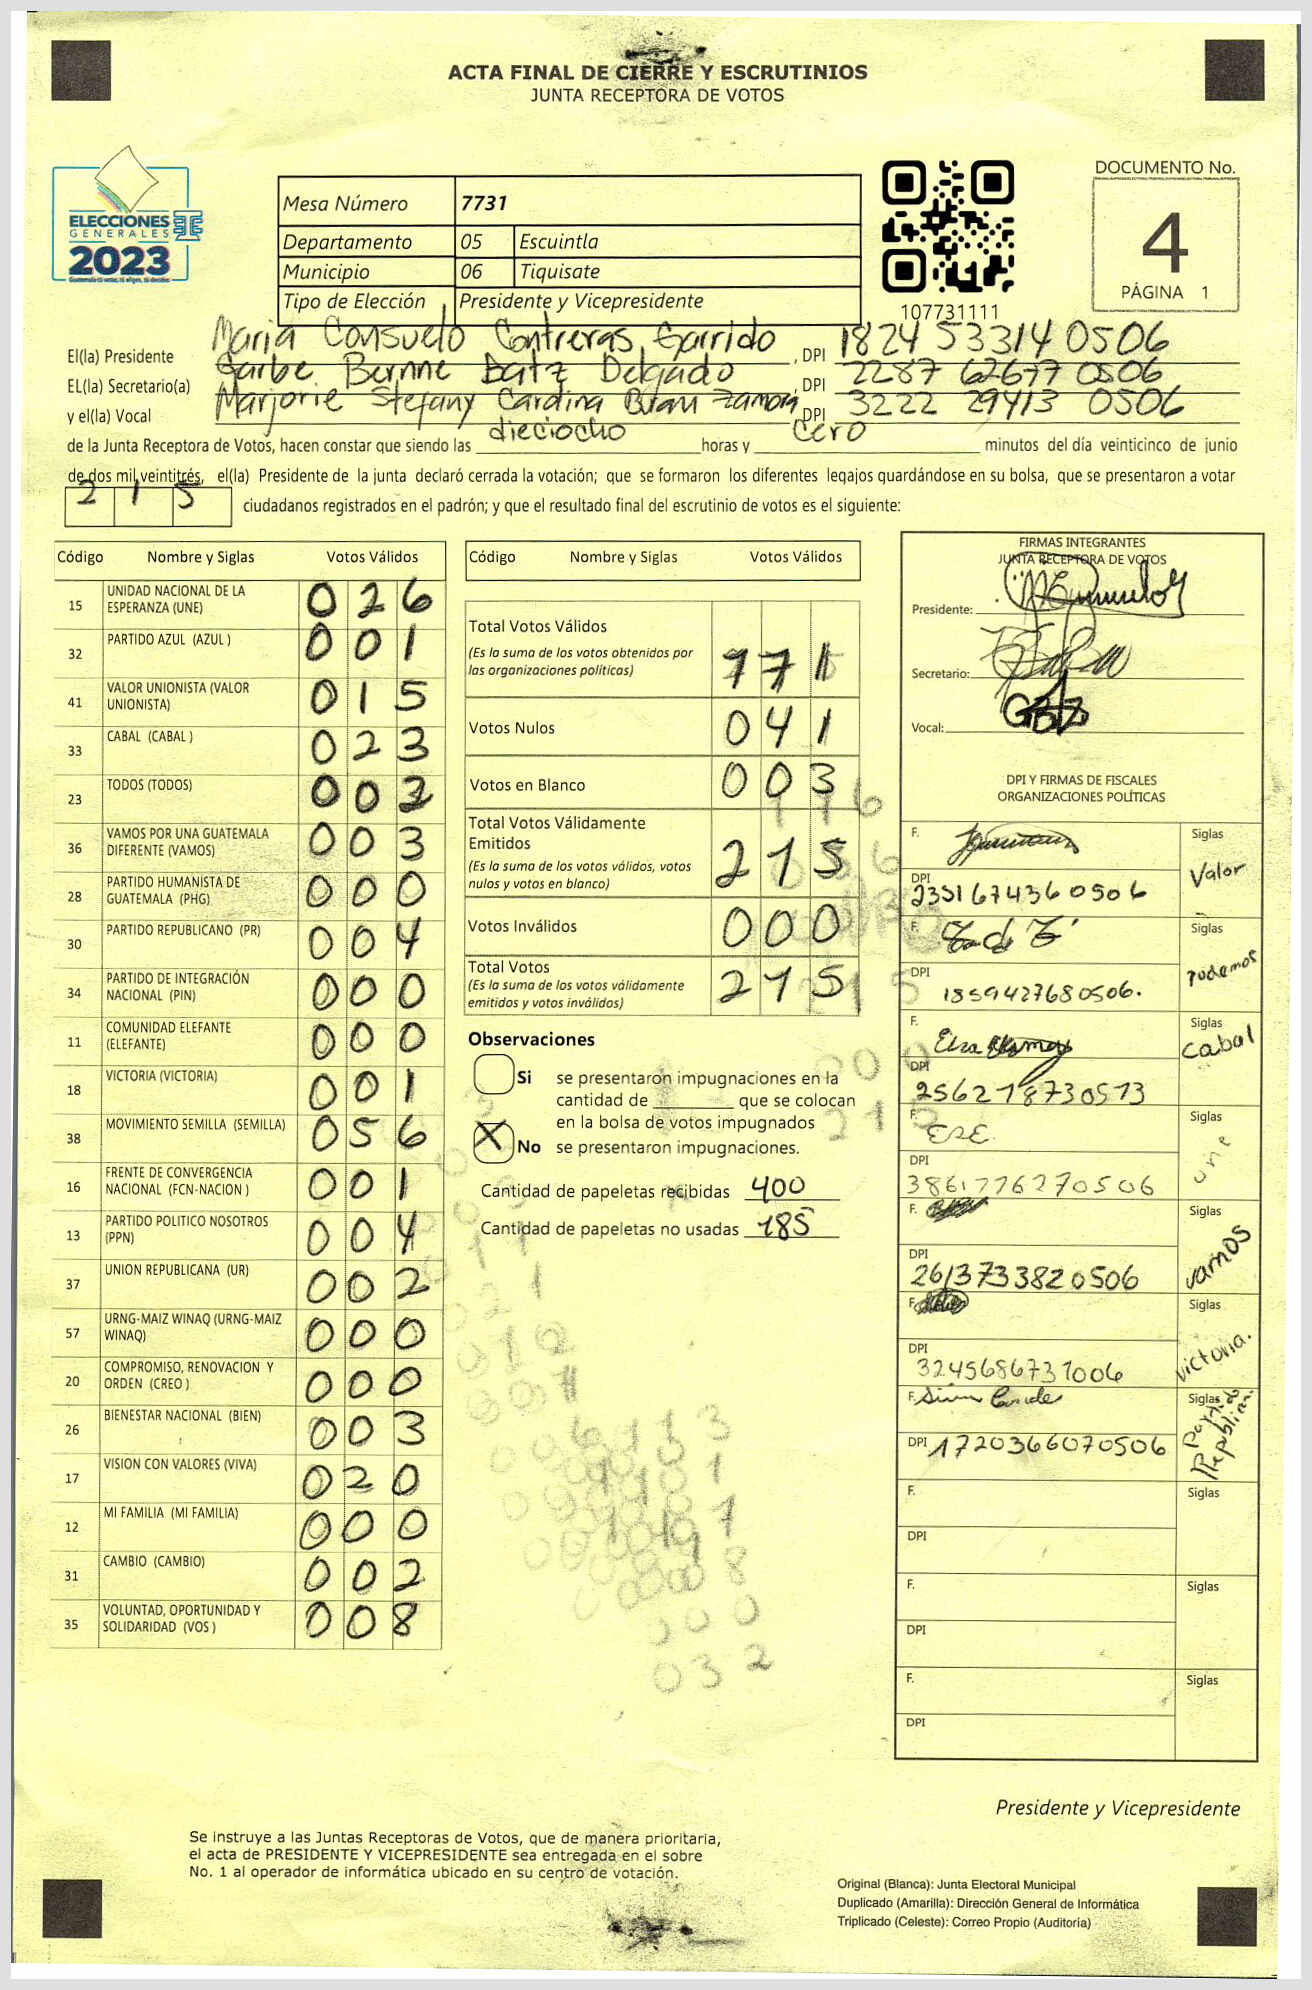 ACTA FINAL DE CIERRE Y ESCRUTINIOS
JUNTA RECEPTORA DE VOTOS
ELECCIONES
GENERALES
2023
Mesa Número 7731
Departamento 05 Escuintla
Municipio 06 Tiquisate
Tipo de Elección Presidente y Vicepresidente
107731111
DOCUMENTO No.
4
PÁGINA 1
El(la) Presidente Maria Consuelo Contreras Garrido , DPI 1824 53314 0506
EL(la) Secretario(a) Garbe Bernne Batz Delgado , DPI 2287 62677 0506
y el(la) Vocal Marjorie Stefany Cardina Zamora DPI 3222 29413 0506
de la Junta Receptora de Votos, hacen constar que siendo las dieciocho horas y cero minutos del día veinticinco de junio
de dos mil veintitrés, el(la) Presidente de la junta declaró cerrada la votación; que se formaron los diferentes legajos guardándose en su bolsa, que se presentaron a votar
215 ciudadanos registrados en el padrón; y que el resultado final del escrutinio de votos es el siguiente:
Código Nombre y Siglas Votos Válidos
15 UNIDAD NACIONAL DE LA ESPERANZA (UNE) 026
32 PARTIDO AZUL (AZUL ) 001
41 VALOR UNIONISTA (VALOR UNIONISTA) 015
33 CABAL (CABAL ) 023
23 TODOS (TODOS) 002
36 VAMOS POR UNA GUATEMALA DIFERENTE (VAMOS) 003
28 PARTIDO HUMANISTA DE GUATEMALA (PHG) 000
30 PARTIDO REPUBLICANO (PR) 004
34 PARTIDO DE INTEGRACIÓN NACIONAL (PIN) 000
11 COMUNIDAD ELEFANTE (ELEFANTE) 000
18 VICTORIA (VICTORIA) 001
38 MOVIMIENTO SEMILLA (SEMILLA) 056
16 FRENTE DE CONVERGENCIA NACIONAL (FCN-NACION ) 001
13 PARTIDO POLITICO NOSOTROS (PPN) 004
37 UNION REPUBLICANA (UR) 002
57 URNG-MAIZ WINAQ (URNG-MAIZ WINAQ) 000
20 COMPROMISO, RENOVACION Y ORDEN (CREO ) 000
26 BIENESTAR NACIONAL (BIEN) 003
17 VISION CON VALORES (VIVA) 020
12 MI FAMILIA (MI FAMILIA) 000
31 CAMBIO (CAMBIO) 002
35 VOLUNTAD, OPORTUNIDAD Y SOLIDARIDAD (VOS ) 008
Código Nombre y Siglas Votos Válidos
Total Votos Válidos
(Es la suma de los votos obtenidos por las organizaciones políticas) 171
Votos Nulos 041
Votos en Blanco 003
Total Votos Válidamente Emitidos
(Es la suma de los votos válidos, votos nulos y votos en blanco) 215
Votos Inválidos 000
Total Votos
(Es la suma de los votos válidamente emitidos y votos inválidos) 215
Observaciones
Si se presentaron impugnaciones en la
cantidad de ________ que se colocan
en la bolsa de votos impugnados
X No se presentaron impugnaciones.
Cantidad de papeletas recibidas 400
Cantidad de papeletas no usadas 185
FIRMAS INTEGRANTES
JUNTA RECEPTORA DE VOTOS
Presidente:
Secretario:
Vocal:
DPI Y FIRMAS DE FISCALES
ORGANIZACIONES POLÍTICAS
F. Siglas Valor
DPI 2351674360506
F. Siglas Podemos
DPI 1859427680506.
F. Siglas Cabal
DPI 2562178730513
F. Siglas une
DPI 3861776270506
F. Siglas vamos
DPI 2613733820506
F. Siglas victoria.
DPI 3245686731006
F. Siglas Partido Republicano
DPI 1720366070506
F. Siglas
DPI
F. Siglas
DPI
F. Siglas
DPI
Presidente y Vicepresidente
Se instruye a las Juntas Receptoras de Votos, que de manera prioritaria,
el acta de PRESIDENTE Y VICEPRESIDENTE sea entregada en el sobre
No. 1 al operador de informática ubicado en su centro de votación.
Original (Blanca): Junta Electoral Municipal
Duplicado (Amarilla): Dirección General de Informática
Triplicado (Celeste): Correo Propio (Auditoría)